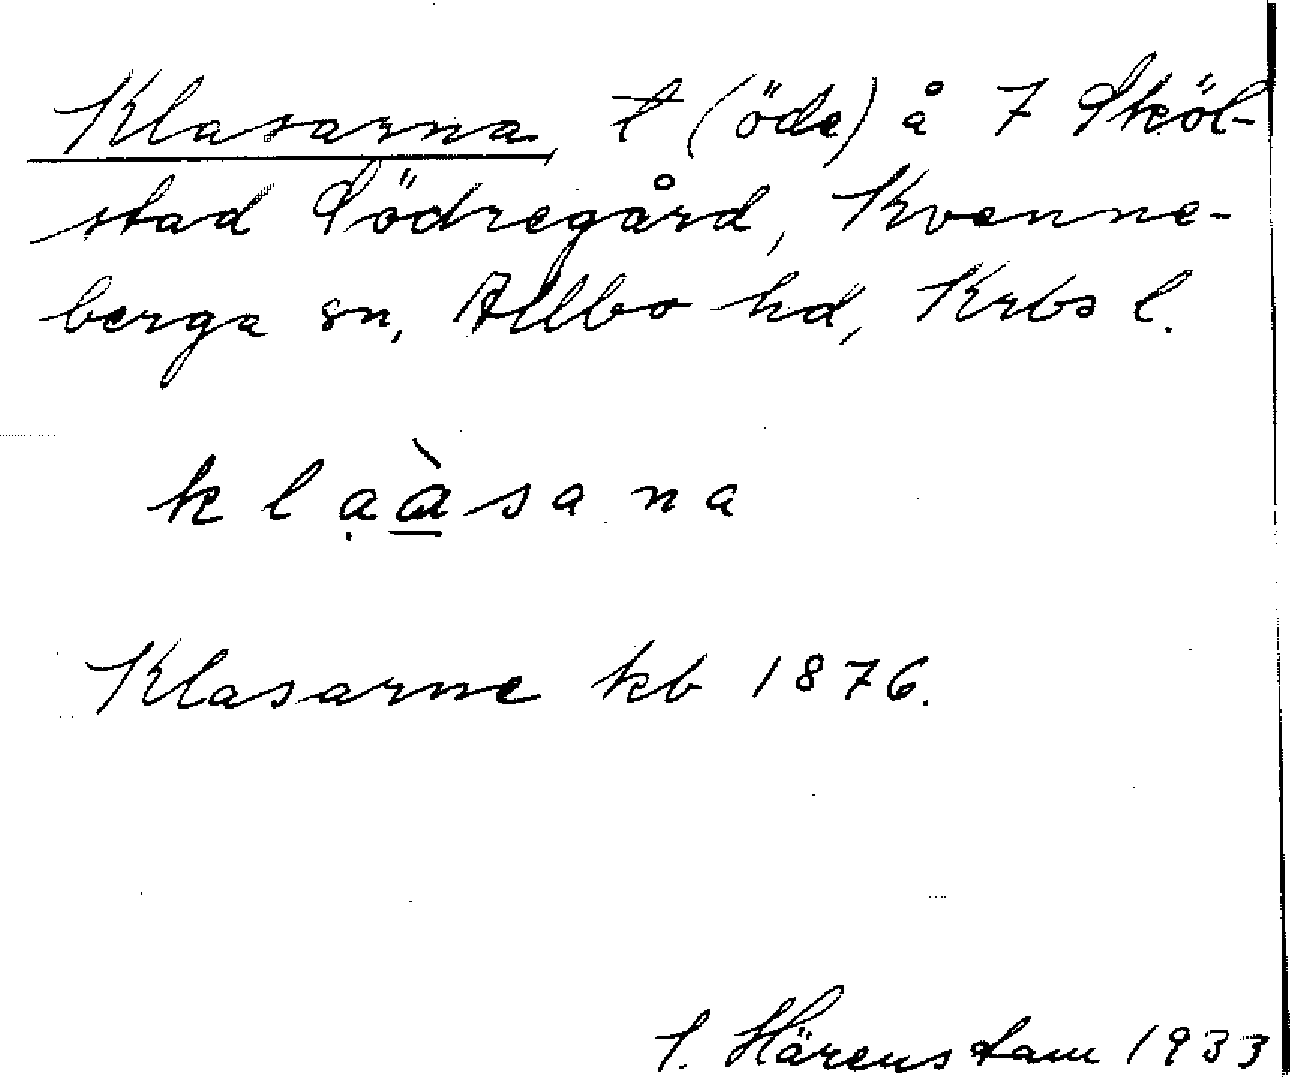 Klasarna, t (öde) å 7 Sköl-
stad Södregård, Kvenne-
berga sn, Allbo hd, Krbs l.
k l ạ à s a n a
Klasarne kb 1876.
Härenstam 1933